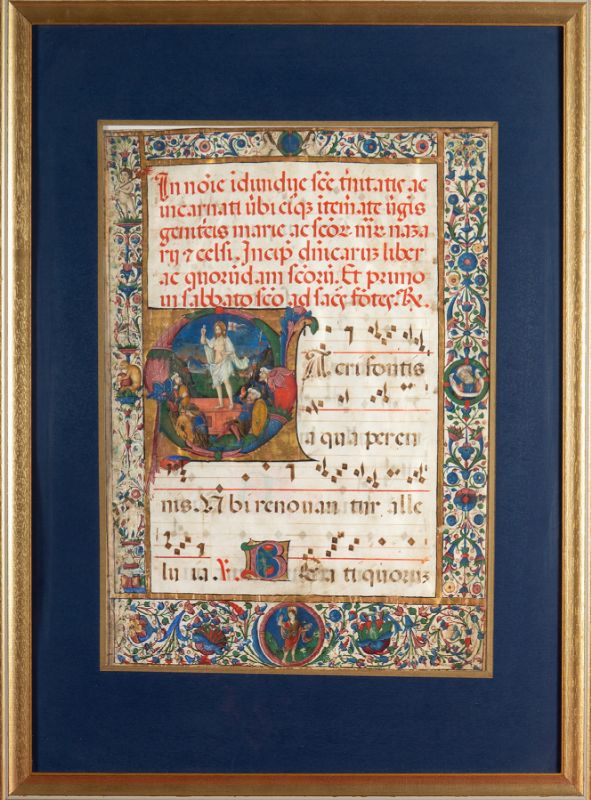 In noīe īdiuidue scē trinitatis ac
incarnati ūbi eiq₃ ītemate ūgīs
genitcis marie ac scōꝝ mꝝ naza
rij ⁊ celsi. Incip̄ dn̄icarū liber
ac quorūdam scōrū. Et primo
in sabbato scō ad sacꝭ fōtes. ℞.
Sacri fontis
aqua peren
nis. Vbi renouantur alle
luia. V. Beati quoruꝫ